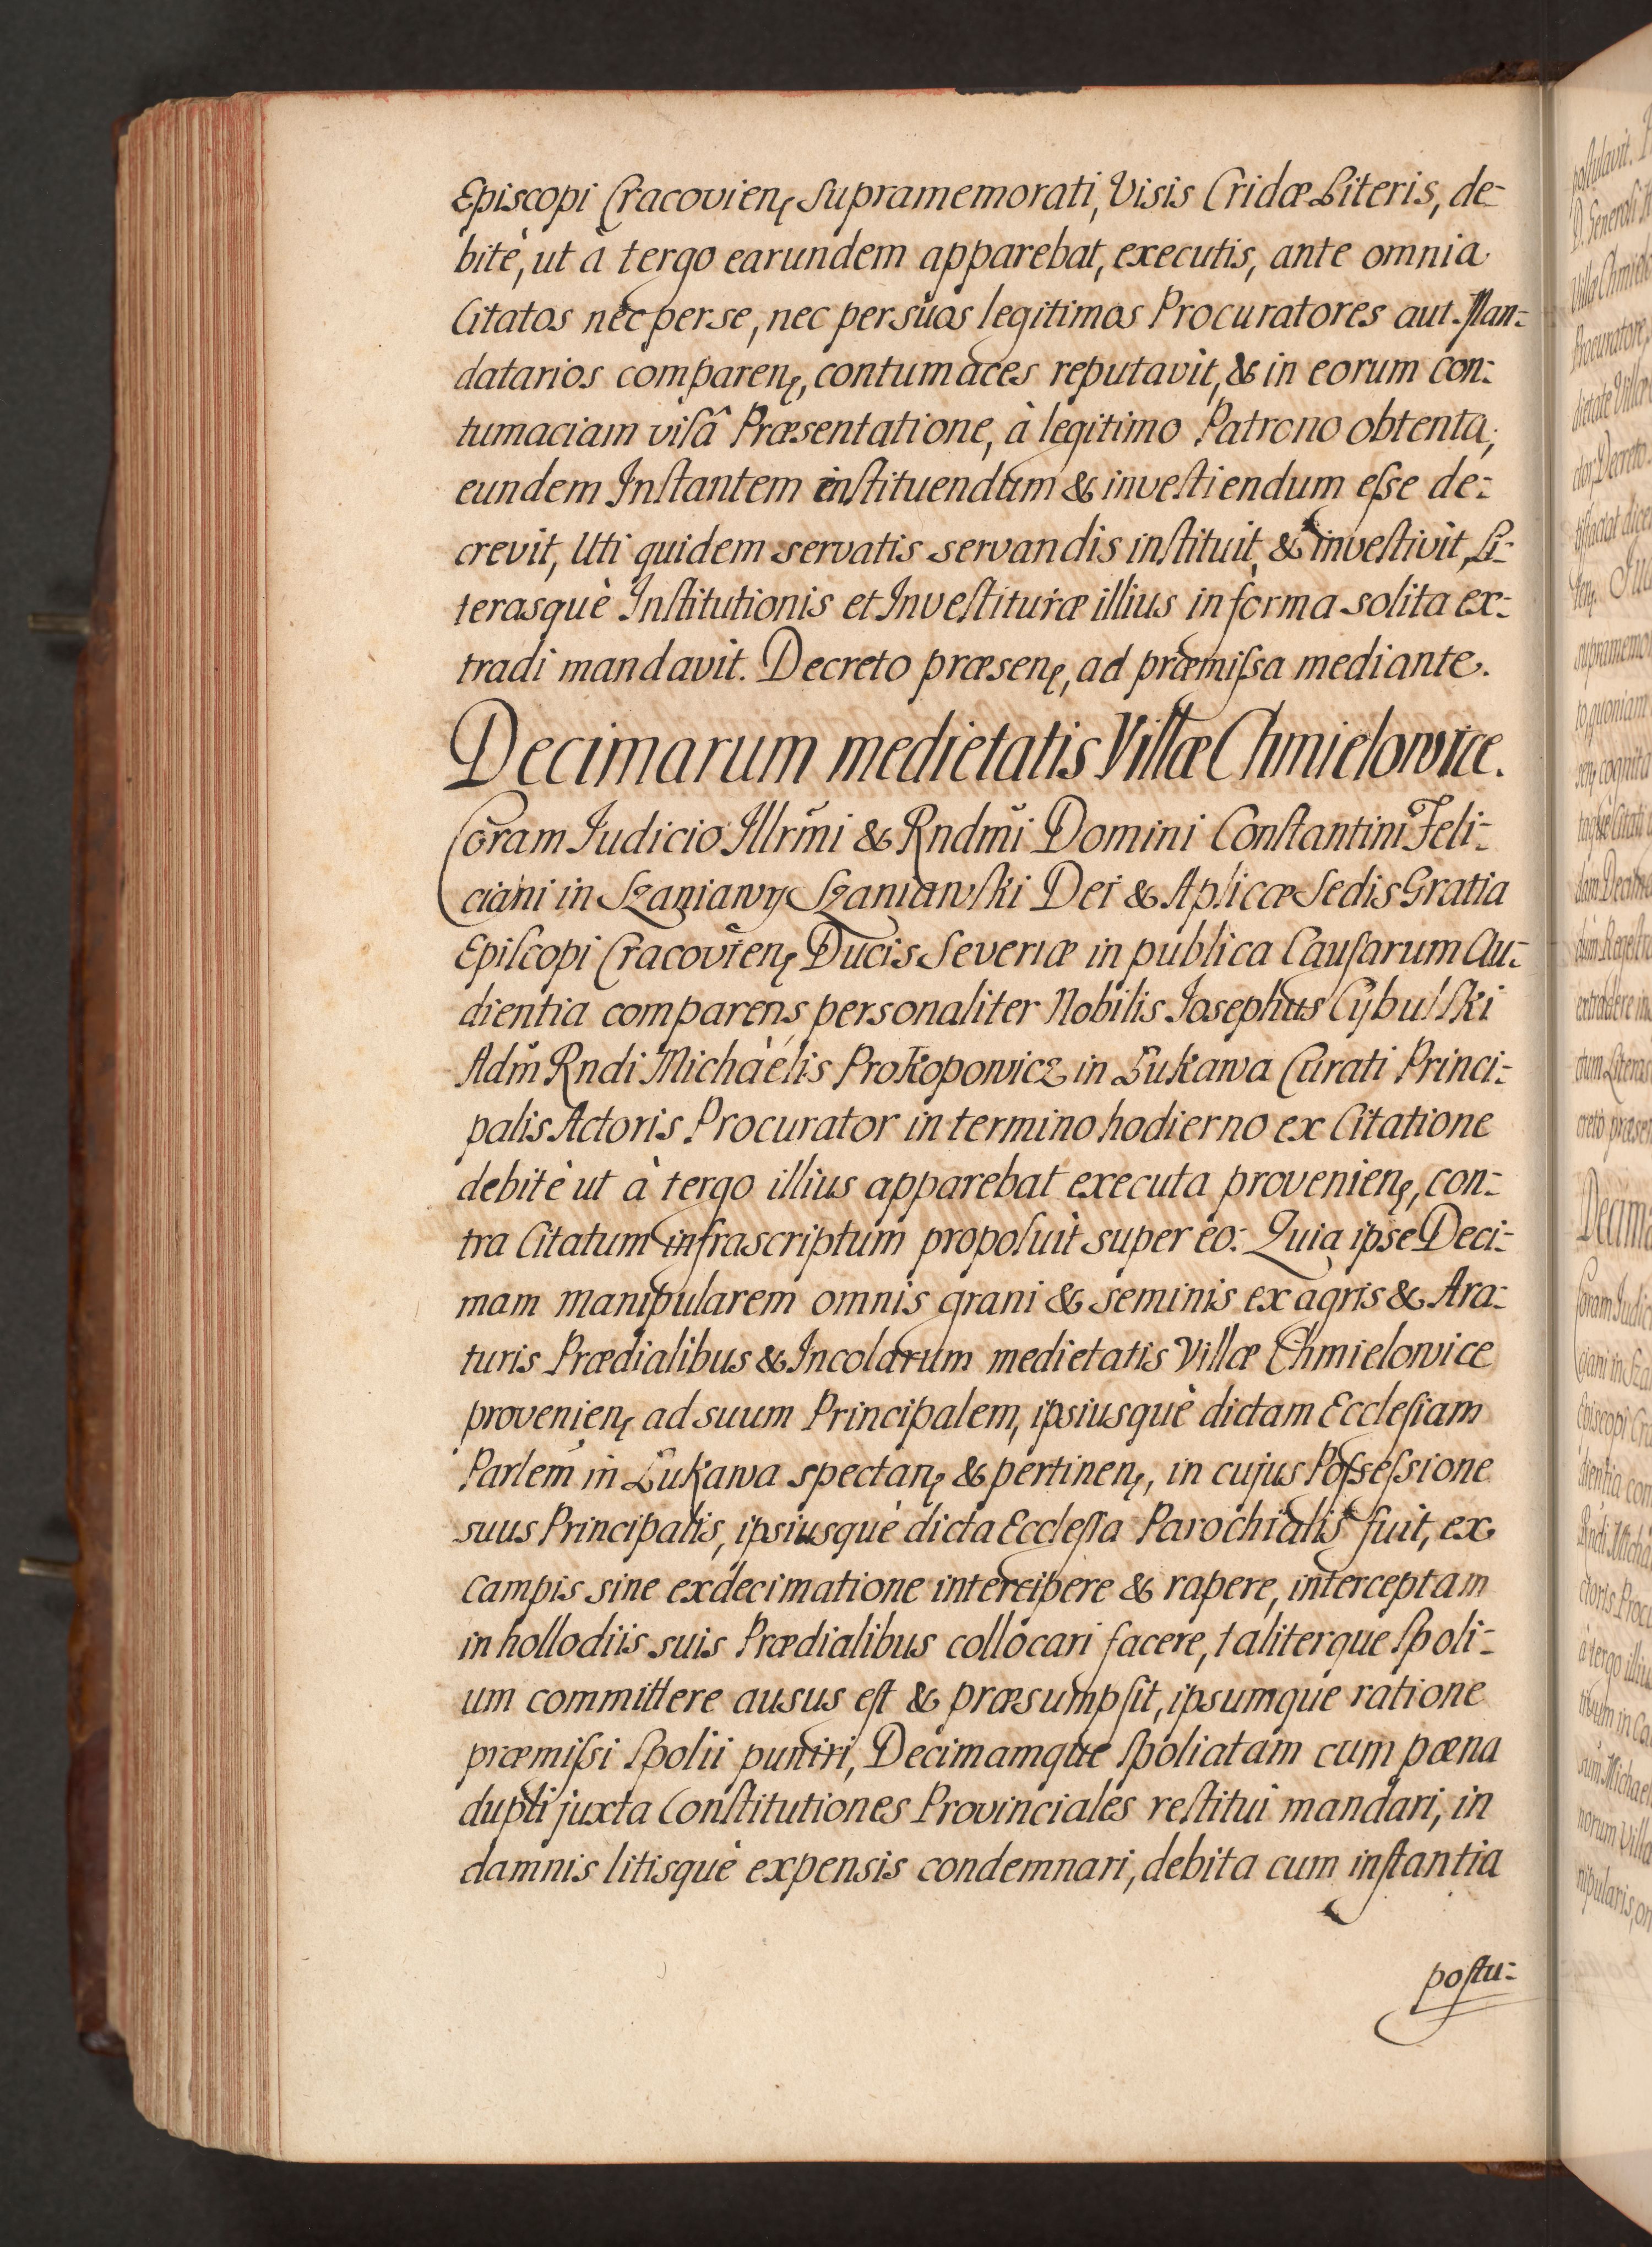 Episcopi Cracovienę supramemorati, Visis Cridæ Literis, de-
bitè, ut à tergo earundem apparebat, executis, ante omnia
Citatos nec per se, nec per suos legitimos Procuratores aut Man:
datarios comparenę, contumaces reputavit, & in eorum con:
tumaciam viſâ Præsentatione, à legitimo Patrono obtenta,
eundem Inſtantem inſtituendum & inveſtiendum eſse de:
crevit, Uti quidem servatis servandis inſtituit, & inveſtivit, Li:
terasquè Inſtitutionis et Inveſtituræ illius in forma solita ex:
tradi mandavit. Decreto præsenę, ad præmiſsa mediante.
Decimarum medietatis Villæ Chmielowice.
Coram Iudicio Illrm̃i & Rndm̃i Domini Conſtantini Feli:
ciani in Szaniawy Szaniawſki Dei & Aplicæ Sedis Gratia
Epiſcopi Cracovienę Ducis Severiæ in publica Cauſarum Au:
dientia comparens personaliter Nobilis Iosephus Cybulſki
Adm̃ Rndi Michaèlis Prokopowicz in Łukawa Curati Princi:
palis Actoris Procurator in termino hodierno ex Citatione
debitè ut à tergo illius apparebat executa provenienę, con:
tra Citatum infrascriptum propoſuit super eo: Quia ipse Deci:
mam manipularem omnis grani & seminis ex agris & Ara:
turis Prædialibus & Incolarum medietatis Villæ Chmielowice
provenienę ad suum Principalem, ipsiusquè dictam Eccleſiam
Parlem̃ in Łukawa spectanę & pertinenę, in cujus Poſseſsione
suus Principalis, ipsiusquè dicta Eccleſia Parochialis fuit, ex
campis sine exdecimatione intercipere & rapere, interceptam
in hollodiis suis Prædialibus collocari facere, taliterque ſpoli:
um committere ausus eſt & præsumpſit, ipsumque ratione
præmiſsi ſpolii puniri, Decimamque ſpoliatam cum pœna
dupli juxta Conſtitutiones Provinciales reſtitui mandari, in
damnis litisquè expensis condemnari, debita cum inſtantia
poſtu: